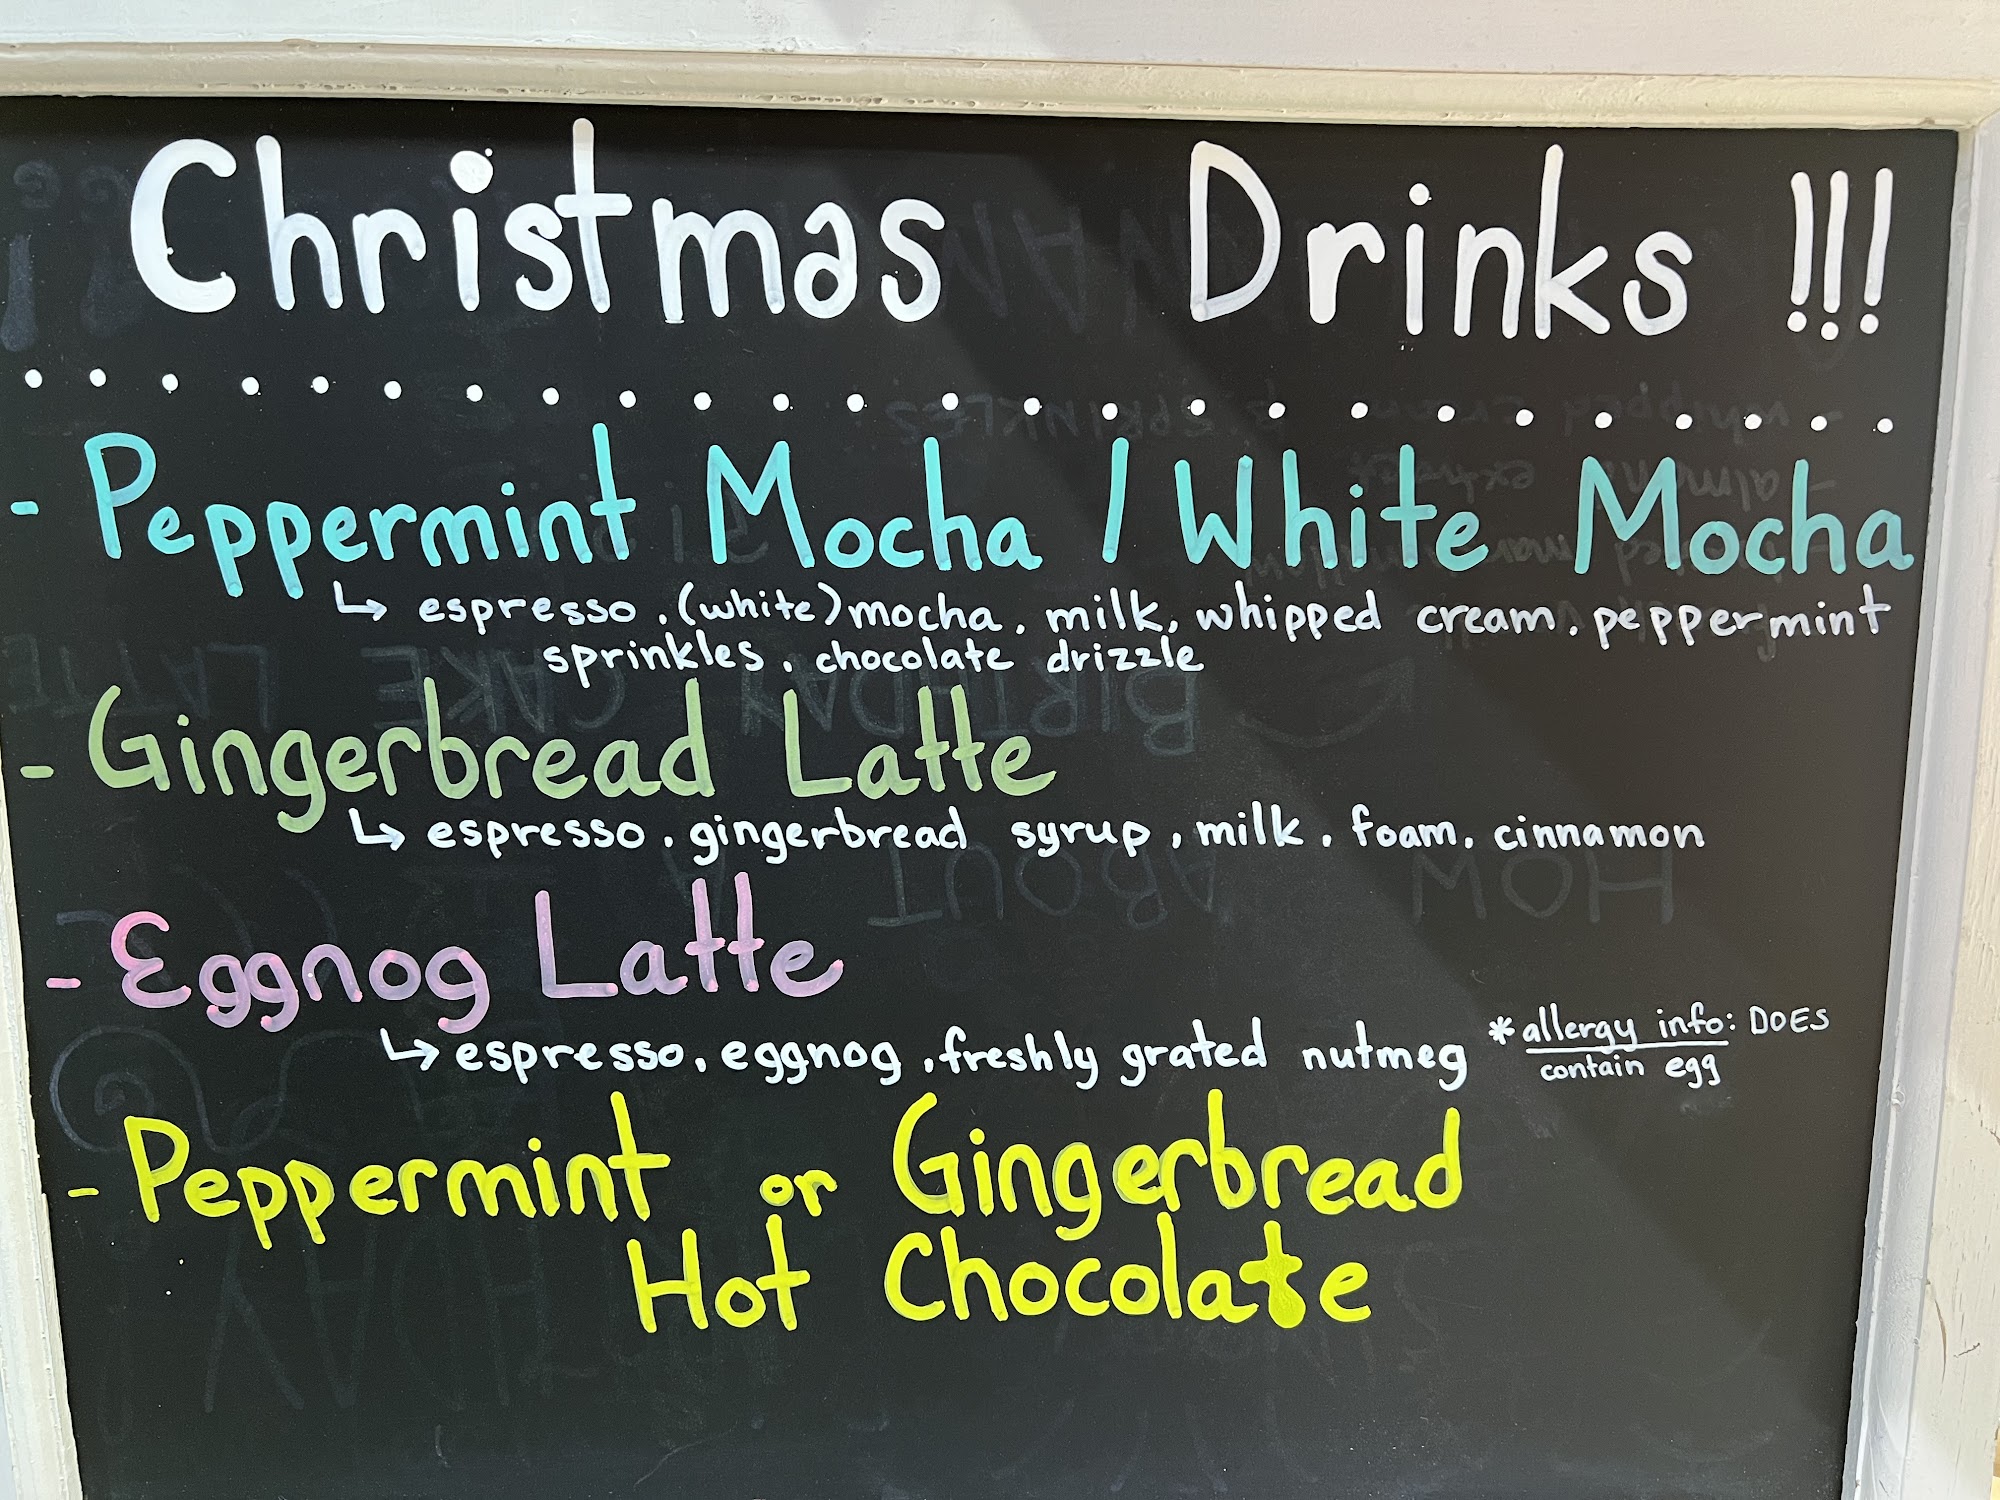 Christmas Drinks !!!
- Peppermint Mocha / White Mocha
↳ espresso, (white) mocha, milk, whipped cream, peppermint
sprinkles, chocolate drizzle
- Gingerbread Latte
↳ espresso, gingerbread syrup, milk, foam, cinnamon
- Eggnog Latte
↳ espresso, eggnog, freshly grated nutmeg
* allergy info: DOES
contain egg
- Peppermint or Gingerbread
Hot Chocolate
HOW ABOUT A
BIRTHDAY CAKE LATTE